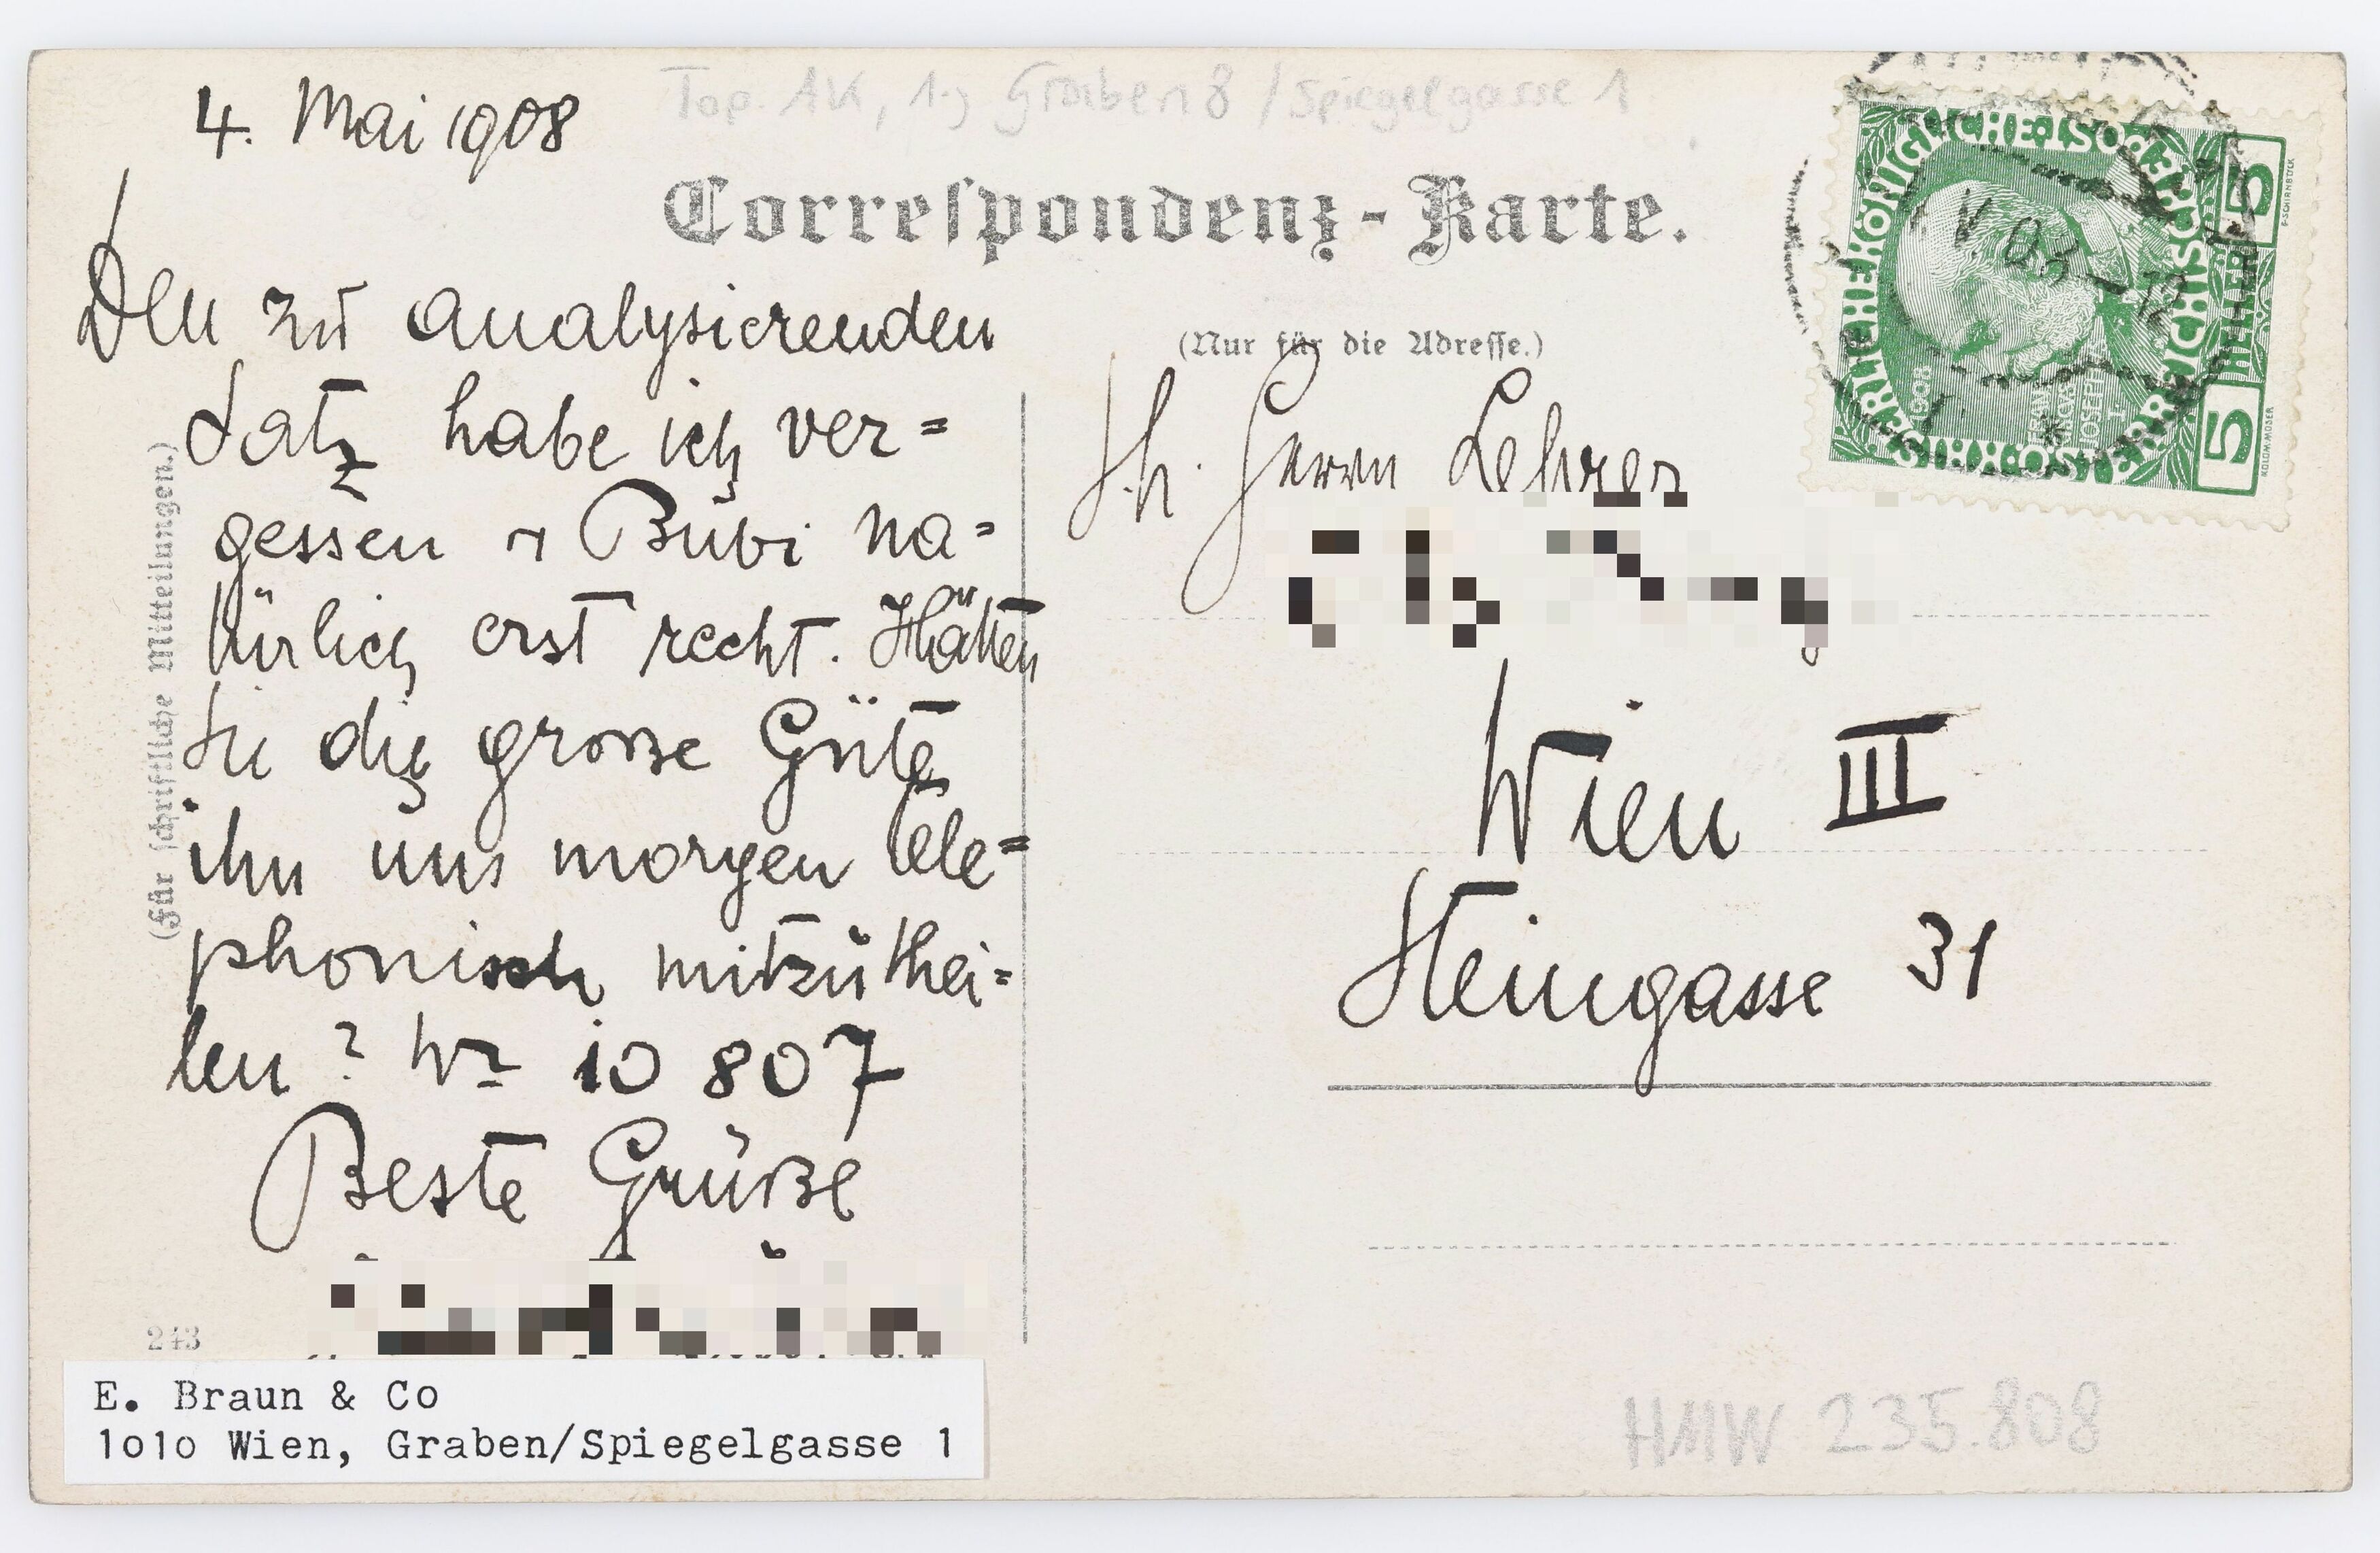 4. Mai 1908
Top. AK, 1., Graben 8 / Spiegelgasse 1
Correspondenz-Karte.
(Nur für die Adresse.)
(Für schriftliche Mitteilungen.)
Den zu analysierenden
Satz habe ich ver=
gessen & Bubi na=
türlich erst recht. Hätten
Sie die große Güte
ihn uns morgen tele=
phonisch mitzuthei=
len? Nr 10 807
Beste Grüße
Herrn Lehrer
Wien III
Steingasse 31
KAISERLICHE KÖNIGLICHE ÖSTERREICHISCHE POST
1908
FRANZ JOSEPH I
5 HELLER 5
KOLOM. MOSER
F. SCHIRNBÖCK
243
E. Braun & Co
1010 Wien, Graben/Spiegelgasse 1
HMW 235.808